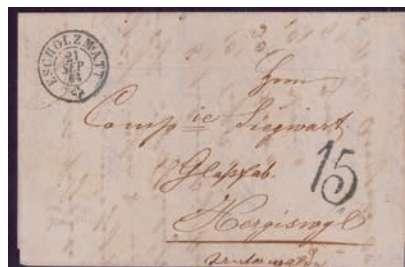 ESCHOLZMATT
21
SEP
64
Herrn
Compie Siegwart
Glasfab.
15
Hergiswyl